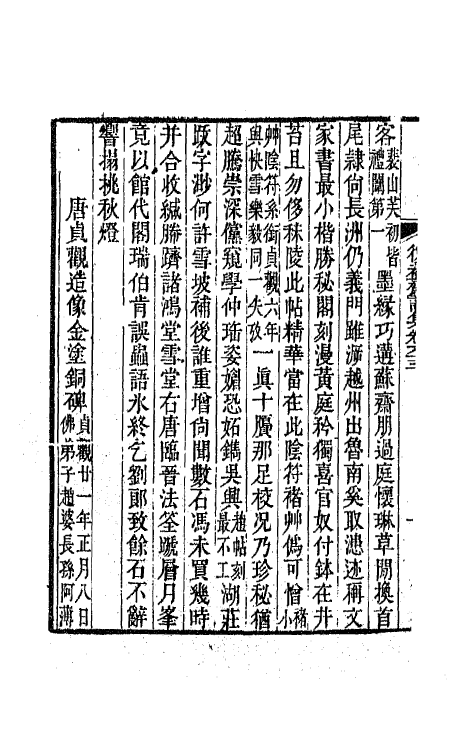 客裴山芙初偕禮闈第一墨緣巧遘蘇齋朋過庭懷琳草閒換首
尾隸尙長洲仍義門雖濔越州出魯南奚取漶迹稱文
家書最小楷勝秘閣刻漫黃庭矜獨喜官奴付鉢在井
苔且勿侈秣陵此帖精華當在此陰符褚艸僞可憎褚小
艸陰符系銜貞觀六年與快雪樂毅同一失攷一眞十贋那足校况乃珍秘猶
超騰崇深儻窺學仲瑶姿媚恐妬鐫吳興趙帖刻最不工湖莊
跋字渺何許雪坡補後誰重增尙聞數石馮未買幾時
并合收緘縢躋諸鴻堂雪堂右唐臨晉法筌踬層月峯
竟以館代閣瑞伯肯誤蟲語氷終乞劉郎致餘石不辭
響搨挑秋燈
唐貞觀造像金塗銅碑貞觀廿一年正月八日佛弟子趙婆長孫阿薄